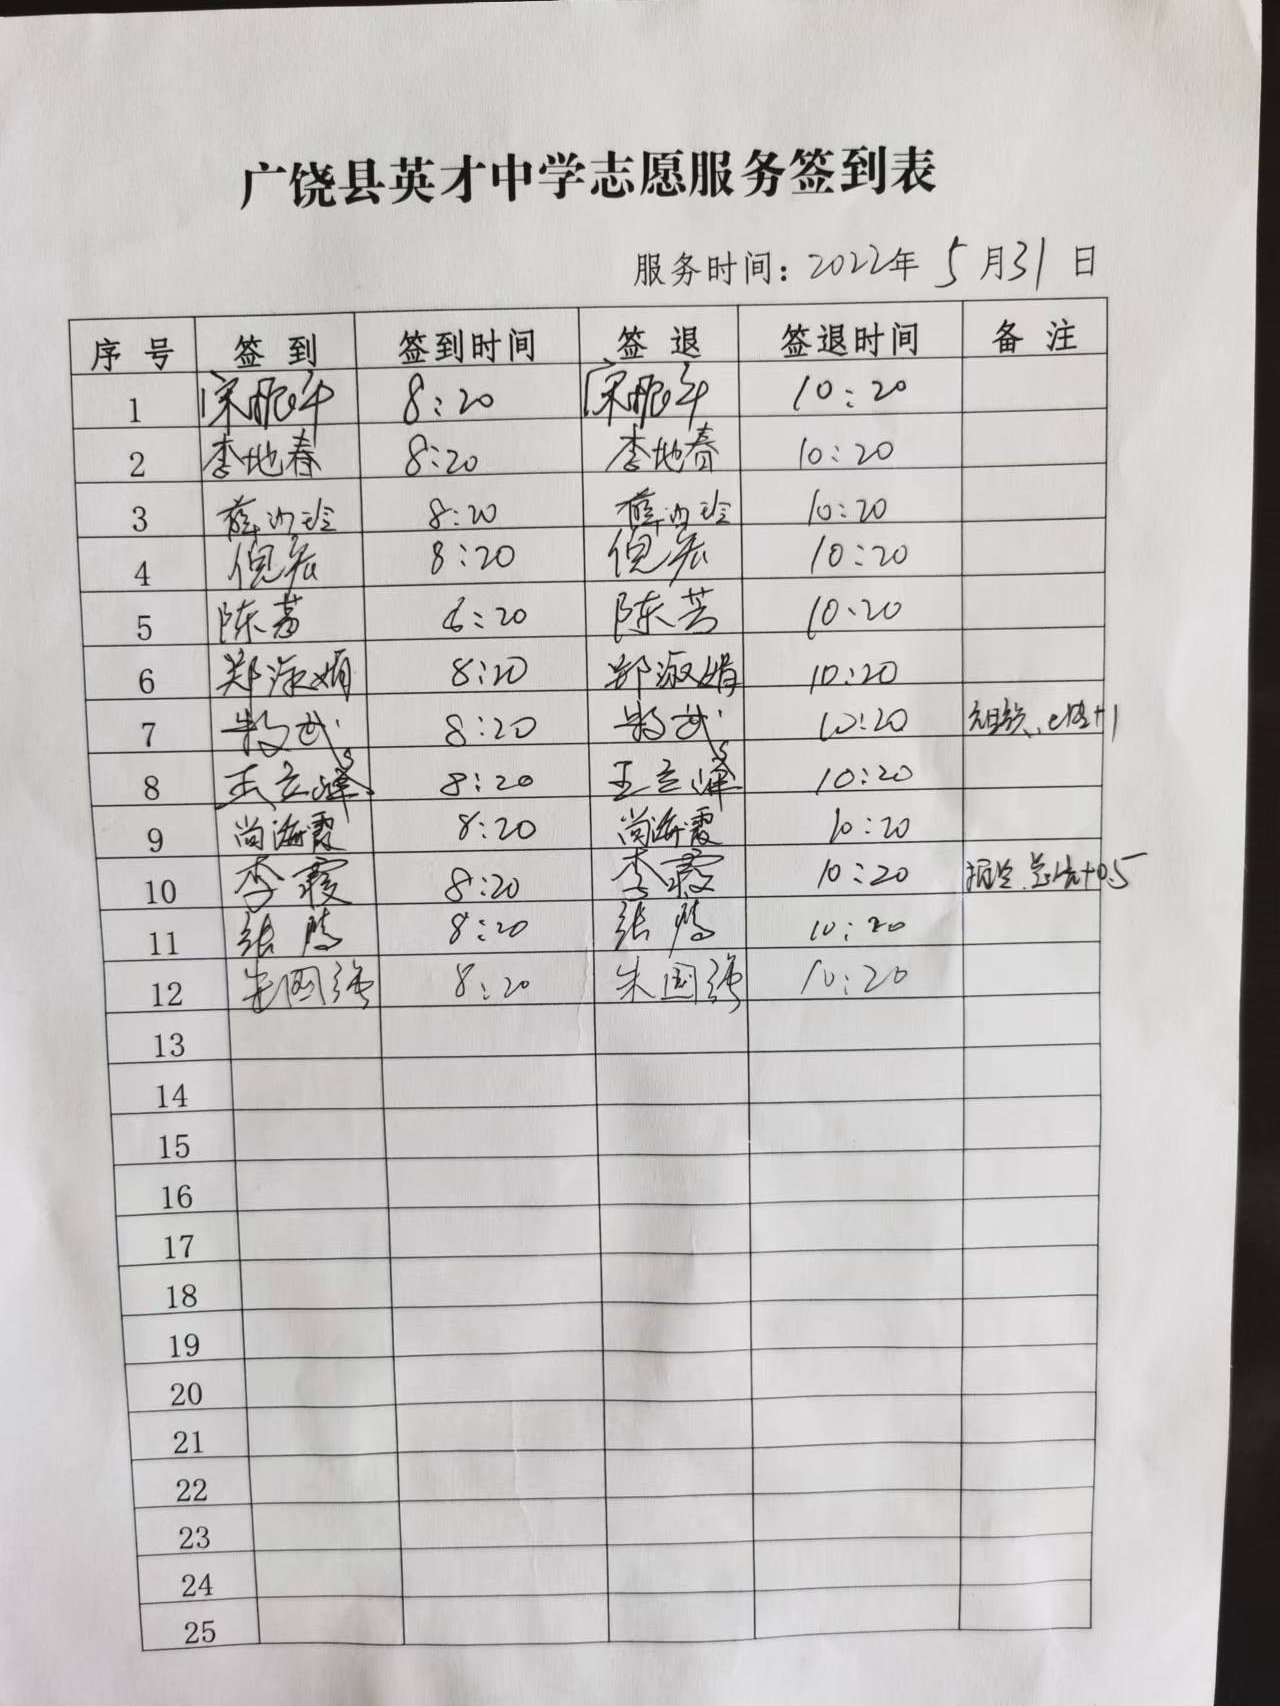 广饶县英才中学志愿服务签到表
服务时间：2022年 5月31日
序号 签到 签到时间 签退 签退时间 备注
1 8:20 10:20
2 李地春 8:20 李地春 10:20
3 8:20 10:20
4 倪宏 8:20 倪宏 10:20
5 陈芳 6:20 陈芳 10:20
6 郑淑娟 8:20 郑淑娟 10:20
7 8:20 10:20 +1
8 王立峰 8:20 王立峰 10:20
9 尚海霞 8:20 尚海霞 10:20
10 李霞 8:20 李霞 10:20 +0.5
11 张腾 8:20 张腾 10:20
12 朱国强 8:20 朱国强 10:20
13
14
15
16
17
18
19
20
21
22
23
24
25